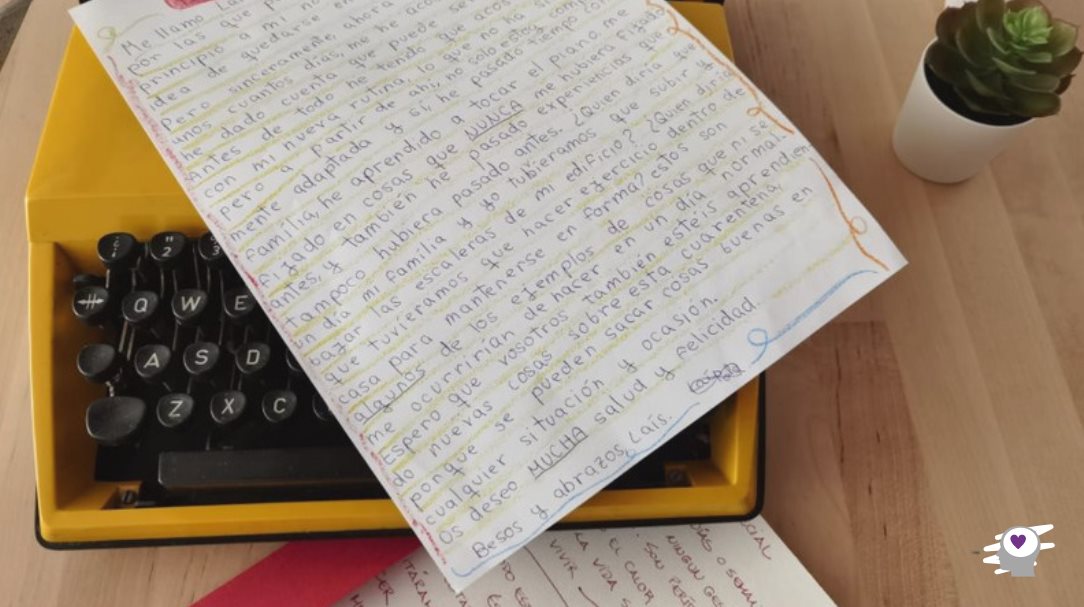 Me llamo
por las que
principio a mi
idea de quedarse en
Pero sinceramente, ahora
unos cuantos días me he
he dado cuenta que puede
Antes de todo he tendo que
con mi nueva rutina, lo que no ha
pero a partir de ahí, no solo estoy
mente adaptada y si, he pasado tiempo con
familia, he aprendido a tocar el piano, me
fijado en cosas que NUNCA me hubiera fijado
antes, y también he pasado experiencias que
tampoco hubiera pasado antes. ¿Quien diria que
un día mi familia y yo tubieramos que subir y
bajar las escaleras de mi edificio? ¿Quien diria
que tuvieramos que hacer ejercicio dentro de
casa para mantenerse en forma? estos son
algunos de los ejemplos de cosas que ni se
me ocurrirían de hacer en un día normal.
Espero que vosotros también estéis aprendien
do nuevas cosas sobre esta cuarentena,
ponque se pueden sacar cosas buenas en
cualquier situación y ocasión.
Os deseo MUCHA salud y felicidad.
Besos y abrazos, Laís.
2 3
Q W E
A S D
Z X C
NINGUN
SON
EL CALOR
LA VIDA
VIVIR